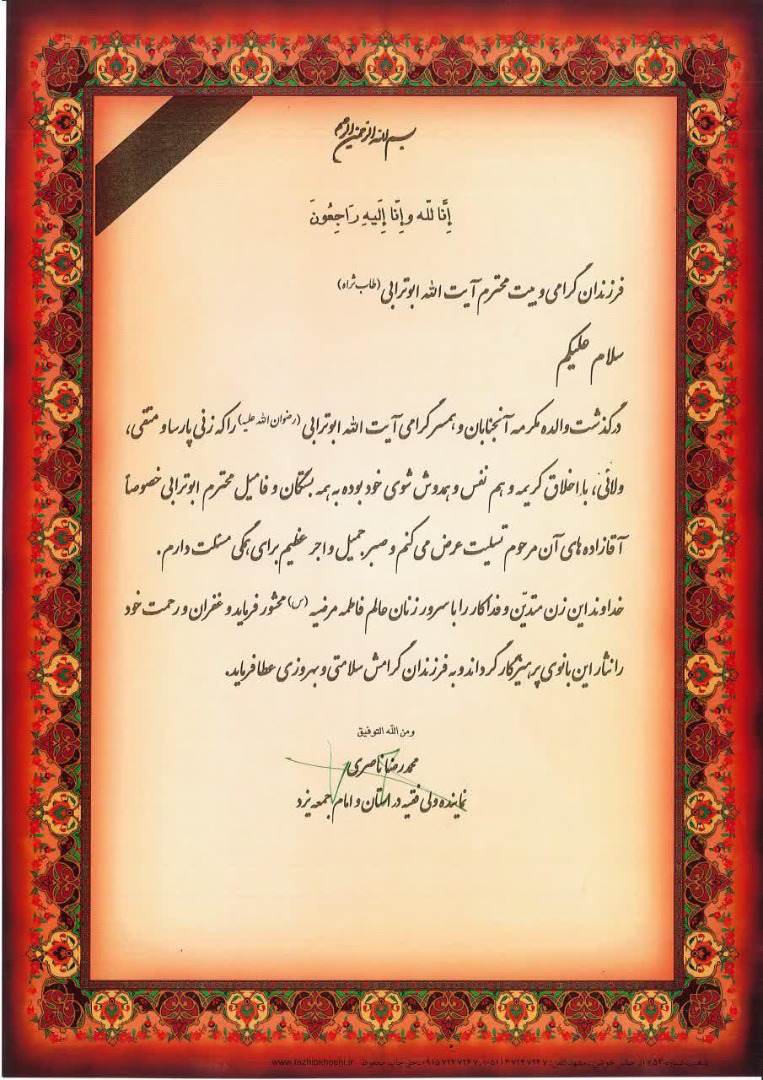 بسم الله الرحمن الرحیم
إِنَّا لِلّه وإِنّا إِلَیهِ رَاجِعُونَ
فرزندان گرامی و بیت محترم آیت الله ابوترابی (طاب ثراه)
سلام علیکم
درگذشت والده مکرمه آنجنابان و همسر گرامی آیت الله ابوترابی (رضوان الله علیه) را که زنی پارسا و متقی،
ولائی، با اخلاق کریمه و هم نفس و همدوش شوی خود بوده به همه بستگان و فامیل محترم ابوترابی خصوصاً
آقازاده های آن مرحوم تسلیت عرض می کنم و صبر جمیل و اجر عظیم برای همگی مسئلت دارم.
خداوند این زن متدیّن و فداکار را با سرور زنان عالم فاطمه مرضیه (س) محشور فرماید و غفران و رحمت خود
را نثار این بانوی پرهیزگار گرداند و به فرزندان گرامش سلامتی و بهروزی عطا فرماید.
ومن اللّه التوفیق
محمدرضا ناصری
نماینده ولی فقیه در استان و امام جمعه یزد
www.lazhibkhoshi.ir